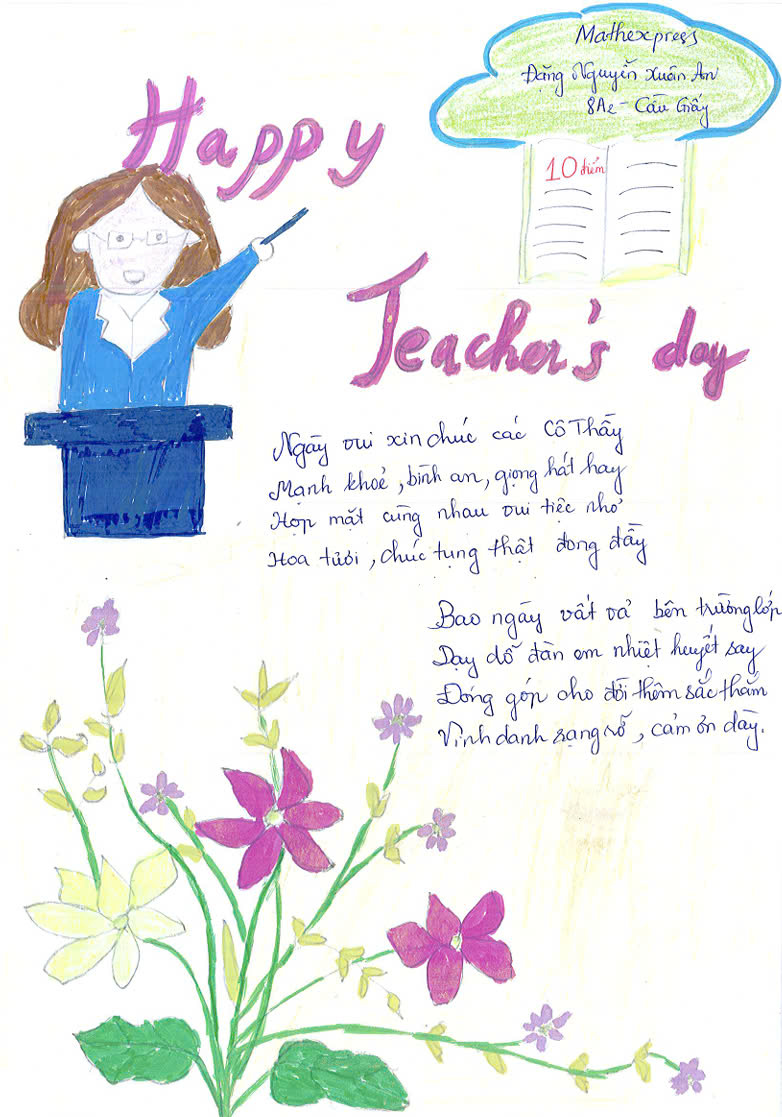 Mathexpress
Đặng Nguyễn Xuân An
8A2 - Cầu Giấy
Happy
10 điểm
Teacher's day
Ngày vui xin chúc các Cô Thầy
Mạnh khoẻ, bình an, giọng hát hay
Họp mặt cùng nhau vui tiệc nhỏ
Hoa tươi, chúc tụng thật đong đầy
Bao ngày vất vả bên trường lớp
Dạy dỗ đàn em nhiệt huyết say
Đóng góp cho đời thêm sắc thắm
Vinh danh rạng rỡ, cảm ơn dày.